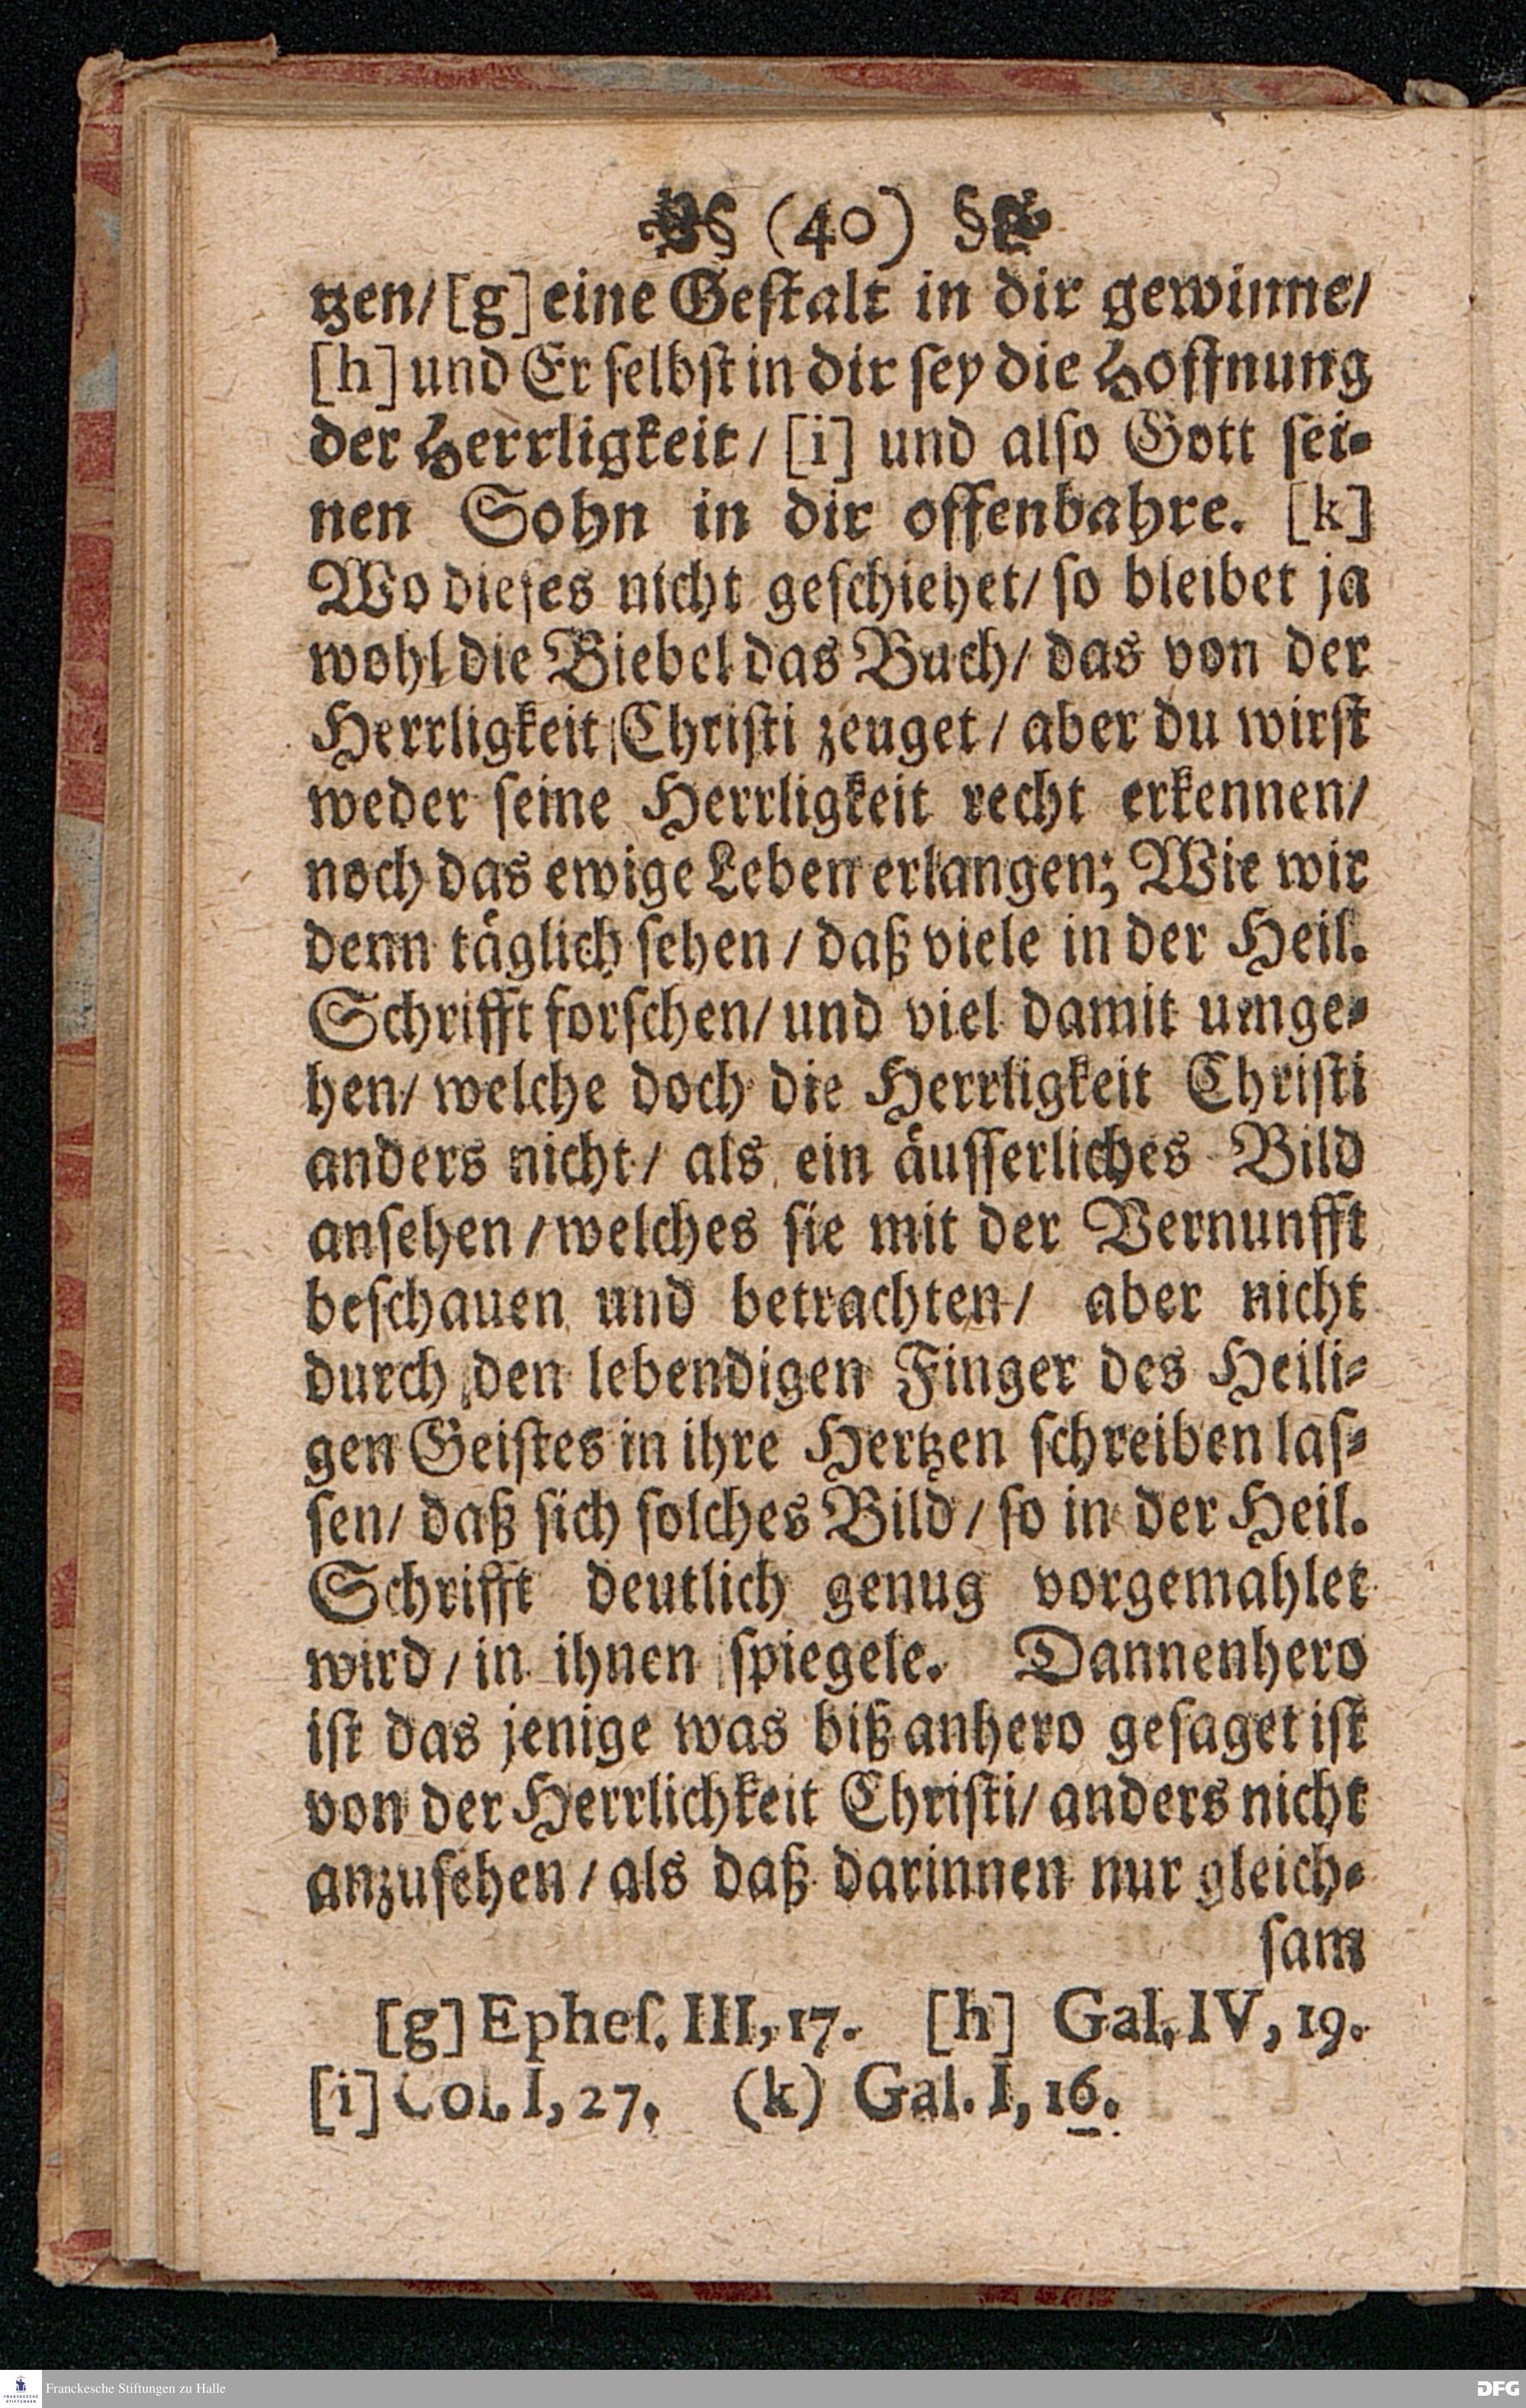 § (40) §
tzen/ [g] eine Gestalt in dir gewinne/
[h] und Er selbst in dir sey die Hoffnung
der Herrligkeit/ [i] und also Gott sei-
nen Sohn in dir offenbahre. [k]
Wo dieses nicht geschiehet/ so bleibet ja
wohl die Biebel das Buch/ das von der
Herrligkeit Christi zeuget/ aber du wirst
weder seine Herrligkeit recht erkennen/
noch das ewige Leben erlangen; Wie wir
denn täglich sehen/ daß viele in der Heil.
Schrifft forschen/ und viel damit umge-
hen/ welche doch die Herrligkeit Christi
anders nicht/ als ein äusserliches Bild
ansehen/ welches sie mit der Vernunfft
beschauen und betrachten/ aber nicht
durch den lebendigen Finger des Heili-
gen Geistes in ihre Hertzen schreiben las-
sen/ daß sich solches Bild/ so in der Heil.
Schrifft deutlich genug vorgemahlet
wird/ in ihnen spiegele. Dannenhero
ist das jenige was biß anhero gesaget ist
von der Herrlichkeit Christi/ anders nicht
anzusehen/ als daß darinnen nur gleich-
sam
[g] Ephes. III, 17. [h] Gal. IV, 19.
[i] Col. I, 27. (k) Gal. I, 16.
Franckesche Stiftungen zu Halle
DFG